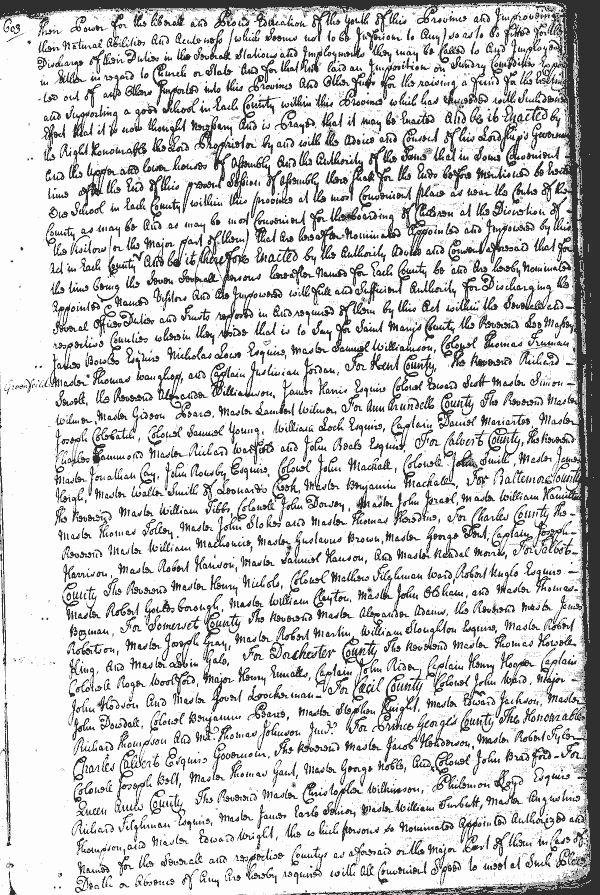 603
their Power for the liberall and Pious Education of the Youth of this Province and Improveing
their Natural Abilities And Acuteness (which seems not to be Inferiour to Any) so as to be fitted for the
Discharge of their Duties in the Severall Stations and Imployments they may be Called to And Imployed
in Either in regard to Church or State And for that End laid an Imposition on Sundry Comodities Expor
-ted out of and Others Imported into this Province And Other fines for the raising a fund for the
and Supporting a good School in Each County within this Province which has Succeeded with Such
Effect that it is now thought necessary And is Prayed that it may be Enacted And be it Enacted by
the Right Honourable the Lord Proprietor by and with the Advice and Consent of his Lordships Governour
and the upper and lower houses of Assembly And the Authority of the Same that in Some Convenient
time after the End of this present Session of Assembly there shall for the Ends before Mentioned be Erected
One School in Each County within this province at the most Convenient place as near the Centre of the
County as may be And as may be most Convenient for the boarding of Children at the Discretion of
the Visitors or the Major part of them) that are hereafter Nominated Appointed and Impowered by this
Act in Each County And be it therefore Enacted by the Authority Advice and Consent aforesaid that for
the time being the Seven Severall persons hereafter Named for Each County be and Are hereby Nominated
Appointed & Named Visitors And Are Impowered with full and Sufficient Authority for Discharging the
Severall Offices Duties and Trusts reposed in and required of them by this Act within the Severall and
respective Counties wherein they reside that is to Say for Saint Marys County, the Reverend Leo Massey
James Bowles Esquire Nicholas Lowe Esquire, Master Samuel Williamson, Colonel Thomas Trueman
Greenfield Master Thomas Waughop, and Captain Justinian Jordan, For Kent County, The Reverend Richard
Sewell, the Reverend Alexander Williamson, James Harris Esquire Colonel Edward Scott Master Simon
Wilmer, Master Gideon Pearce, Master Lambert Wilmer, For Ann Arundell County The Reverend Master
Joseph Colebatch, Colonel Samuel Young, William Lock Esquire, Captain Daniel Mariartee Master
Charles Hammond Master Richard Warfield and John Beale Esquire, For Calvert County, the Reverend
Master Jonathan Cay, John Rousby Esquire, Colonel John Mackall, Colonell John Smith, Master James
Heigh, Master Walter Smith of Leonards Creek, Master Benjamin Mackall, For Baltemore County
the Reverend Master William Tibbs Colonell John Dorsey, Master John Israel, Master William Hamilton
Master Thomas Tolley, Master John Stokes and Master Thomas Sheredine, For Charles County the
Reverend Master William Machonchie, Master Gustavus Brown, Master George Dent, Captain Joseph
Harrison, Master Robert Hanson, Master Samuel Hanson, And Master Randal Morris, For Talbot
County The Reverend Master Henry Nichols, Colonel Mathew Tilghman Ward, Robert Ungle Esquire
Master Robert Gouldesborough, Master William Clayton, Master John Oldham, and Master Thomas
Bozman, For Somerset County The Reverend Master Alexander Adams, the Reverend Master James
Robertson, Master Joseph Gray, Master Robert Martin, William Stoughton Esquire, Master Robert
King, And Master Levin Gale, For Dorchester County The Reverend Master Thomas Howell
Colonell Roger Woolford, Major Henry Ennalls, Captain John Rider, Captain Henry Hooper Captain
John Hodson And Master Govert Loockerman For Cecil County Colonel John Ward, Major
John Dowdall, Colonel Benjamin Pearce, Master Stephen Knight, Master Edward Jackson, Master
Richard Thompson And Mr. Thomas Johnson Junr. For Prince Georges County The Honourable
Charles Calvert Esquire Governour, The Reverend Master Jacob Henderson, Master Robert Tyler
Colonell Joseph Belt, Master Thomas Gant, Master George Noble, And Colonel John Bradford For
Queen Anns County The Reverend Master Christopher Wilkinson, Philemon Lloyd Esquire
Richard Tilghman Esquire, Master James Earle Senior Master William Turbutt, Master Augustine
Thompson, and Master Edward Wright, the which persons so Nominated Appointed Authorized and
Named for the Severall and respective Countys as aforesaid or the Major Part of them in Case of
Death or Absence of Any Are hereby required with All Convenient Speed to meet at Such Places